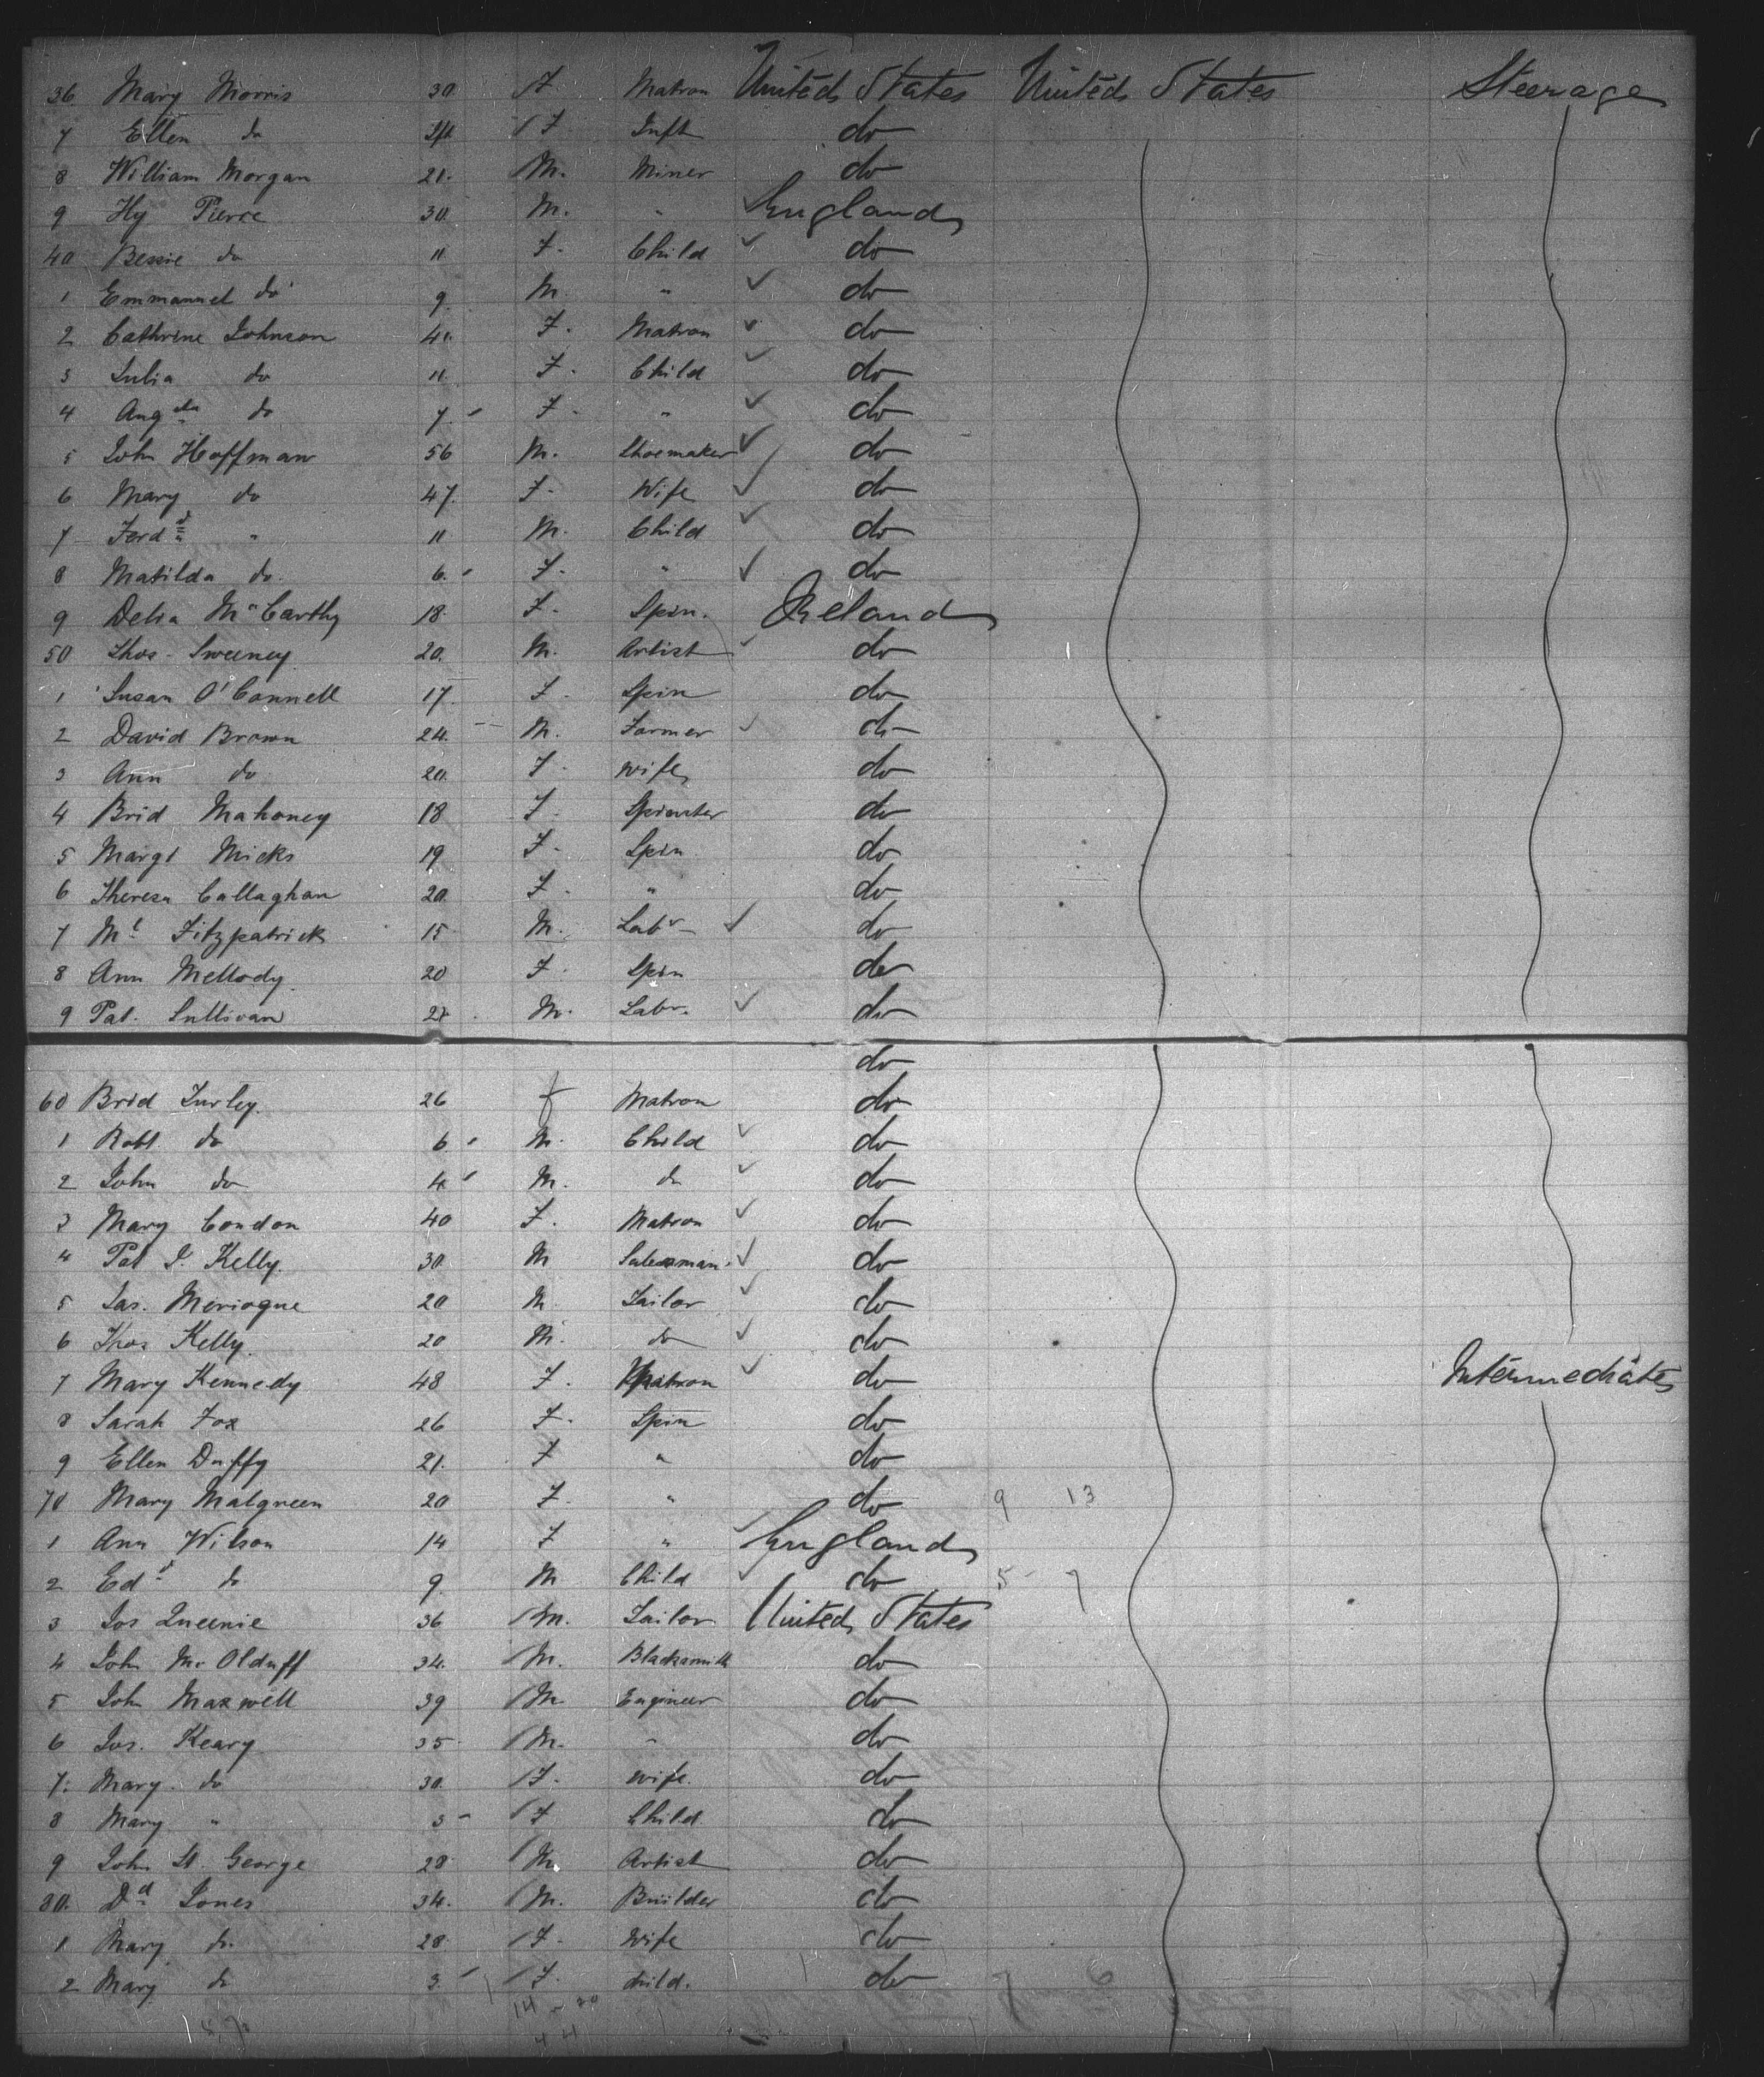 36 Mary Morris 30 F. Matron United States United States Steerage
7 Ellen do Inft F. Inft do
8 William Morgan 21. M. Miner do
9 Hy Pierce 30. M. " England
40 Bessie do 11 F. Child do
1 Emmanuel do 9. M " do
2 Cathrine Johnson 41. F. Matron do
3 Julia do 11. F. Child do
4 Augsta do 7. F. " do
5 John Hoffman 56 M. Shoemaker do
6 Mary do 47. F. Wife do
7 Ferdd " 11 M. Child do
8 Matilda do. 6. F. " do
9 Delia McCarthy 18. F. Spin. Ireland
50 Thos Sweeney 20. M. Artist do
1 Susan O'Connell 17. F. Spin do
2 David Brown 24. M. Farmer do
3 Ann do 20. F. wife do
4 Brid Mahoney 18 F. Spinster do
5 Margt Micks 19 F. Spin do
6 Theresa Callaghan 20. F. " do
7 Ml Fitzpatrick 15 M. Labr do
8 Ann Mellody. 20 F. Spin do
9 Pat. Sullivan M. Labr. do
do
60 Brid Turley. 26 f Matron do
1 Robt. do 6. M. Child do
2 John do 4 M. do do
3 Mary Condon 40 F. Matron do
4 Pat J. Kelly. 30. M Salesman. do
5 Jas. 20 M. Tailor do
6 Thos Kelly. 20 M. do do
7 Mary Kennedy 48 F. Matron do Intermediates
8 Sarah Fox 26 F. Spin do
9 Ellen Duffy 21. F " do
70 Mary Malgreen 20 F. " do 9 13
1 Ann Wilson 14 F " England
2 Edd do 9. M Child do 5 7
3 Jos Queenie 36 M. Tailor United States
4 John Mc Olduff 34. M. Blacksmith do
5 John Maxwell 39 M. Engineer do
6 Jos. Keary 35 M. " do
7. Mary. do 30. F. wife. do
8 Mary " 3 F Child do
9 John St. George 28 M. Artist do
80. Dd Jones 34. M. Builder do
1 Mary do. 28 F. Wife do
2 Mary do 3. F. child. do 7 6
14 20
4 4